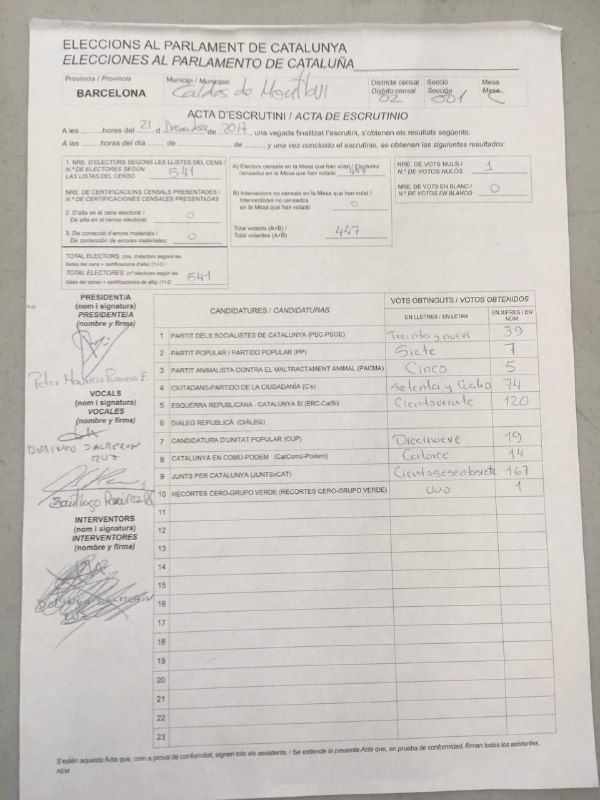 ELECCIONS AL PARLAMENT DE CATALUNYA
ELECCIONES AL PARLAMENTO DE CATALUÑA
Província / Provincia
BARCELONA
Municipi / Municipio
Caldes de Montbui
Districte censal
Distrito censal
02
Secció
Sección
001
Mesa
Mesa
ACTA D'ESCRUTINI / ACTA DE ESCRUTINIO
A les ..........hores del 21 d Diciembre de 2017, una vegada finalitzat l'escrutini, s'obtenen els resultats següents:
A las ..........horas del día .......... de .................... de .........., y una vez concluido el escrutinio, se obtienen los siguientes resultados:
1. NRE. D'ELECTORS SEGONS LES LLISTES DEL CENS /
N.º DE ELECTORES SEGÚN
LAS LISTAS DEL CENSO
541
NRE. DE CERTIFICACIONS CENSALS PRESENTADES /
N.º DE CERTIFICACIONES CENSALES PRESENTADAS
2 D'alta en el cens electoral /
De alta en el censo electoral
0
3 De correcció d'errors materials /
De corrección de errores materiales
0
TOTAL ELECTORS: (nre. d'electors segons les
llistes del cens + certificacions d'alta) (1+2) /
TOTAL ELECTORES: (nº electores según las
listas del censo + certificaciones de alta) (1+2)
541
A) Electors censats en la Mesa que han votat / Electores
censados en la Mesa que han votado
447
B) Interventors no censats en la Mesa que han votat /
Interventores no censados
en la Mesa que han votado
0
Total votants (A+B) /
Total votantes (A+B)
447
NRE. DE VOTS NULS /
N.º DE VOTOS NULOS
1
NRE. DE VOTS EN BLANC /
N.º DE VOTOS EN BLANCO
0
PRESIDENT/A
(nom i signatura)
PRESIDENTE/A
(nombre y firma)
Peter Mauricio Romero E.
VOCALS
(nom i signatura)
VOCALES
(nombre y firma)
DOMINGO CALDERON
RUZ
Santiago Ramirez
INTERVENTORS
(nom i signatura)
INTERVENTORES
(nombre y firma)
CANDIDATURES / CANDIDATURAS
VOTS OBTINGUTS / VOTOS OBTENIDOS
EN LLETRES / EN LETRA
EN XIFRES / EN NÚM.
1 PARTIT DELS SOCIALISTES DE CATALUNYA (PSC-PSOE) Treinta y nueve 39
2 PARTIT POPULAR / PARTIDO POPULAR (PP) Siete 7
3 PARTIT ANIMALISTA CONTRA EL MALTRACTAMENT ANIMAL (PACMA) Cinco 5
4 CIUTADANS-PARTIDO DE LA CIUDADANÍA (C's) Setenta y Cuatro 74
5 ESQUERRA REPUBLICANA - CATALUNYA SÍ (ERC-CatSí) Cientoveinte 120
6 DIÀLEG REPUBLICÀ (DIÀLEG)
7 CANDIDATURA D'UNITAT POPULAR (CUP) Diecinueve 19
8 CATALUNYA EN COMÚ-PODEM (CatComú-Podem) Catorce 14
9 JUNTS PER CATALUNYA (JUNTSxCAT) Cientosesentasiete 167
10 RECORTES CERO-GRUPO VERDE (RECORTES CERO-GRUPO VERDE) uno 1
11
12
13
14
15
16
17
18
19
20
21
22
23
S'estén aquesta Acta que, com a prova de conformitat, signen tots els assistents. / Se extiende la presente Acta que, en prueba de conformidad, firman todos los asistentes.